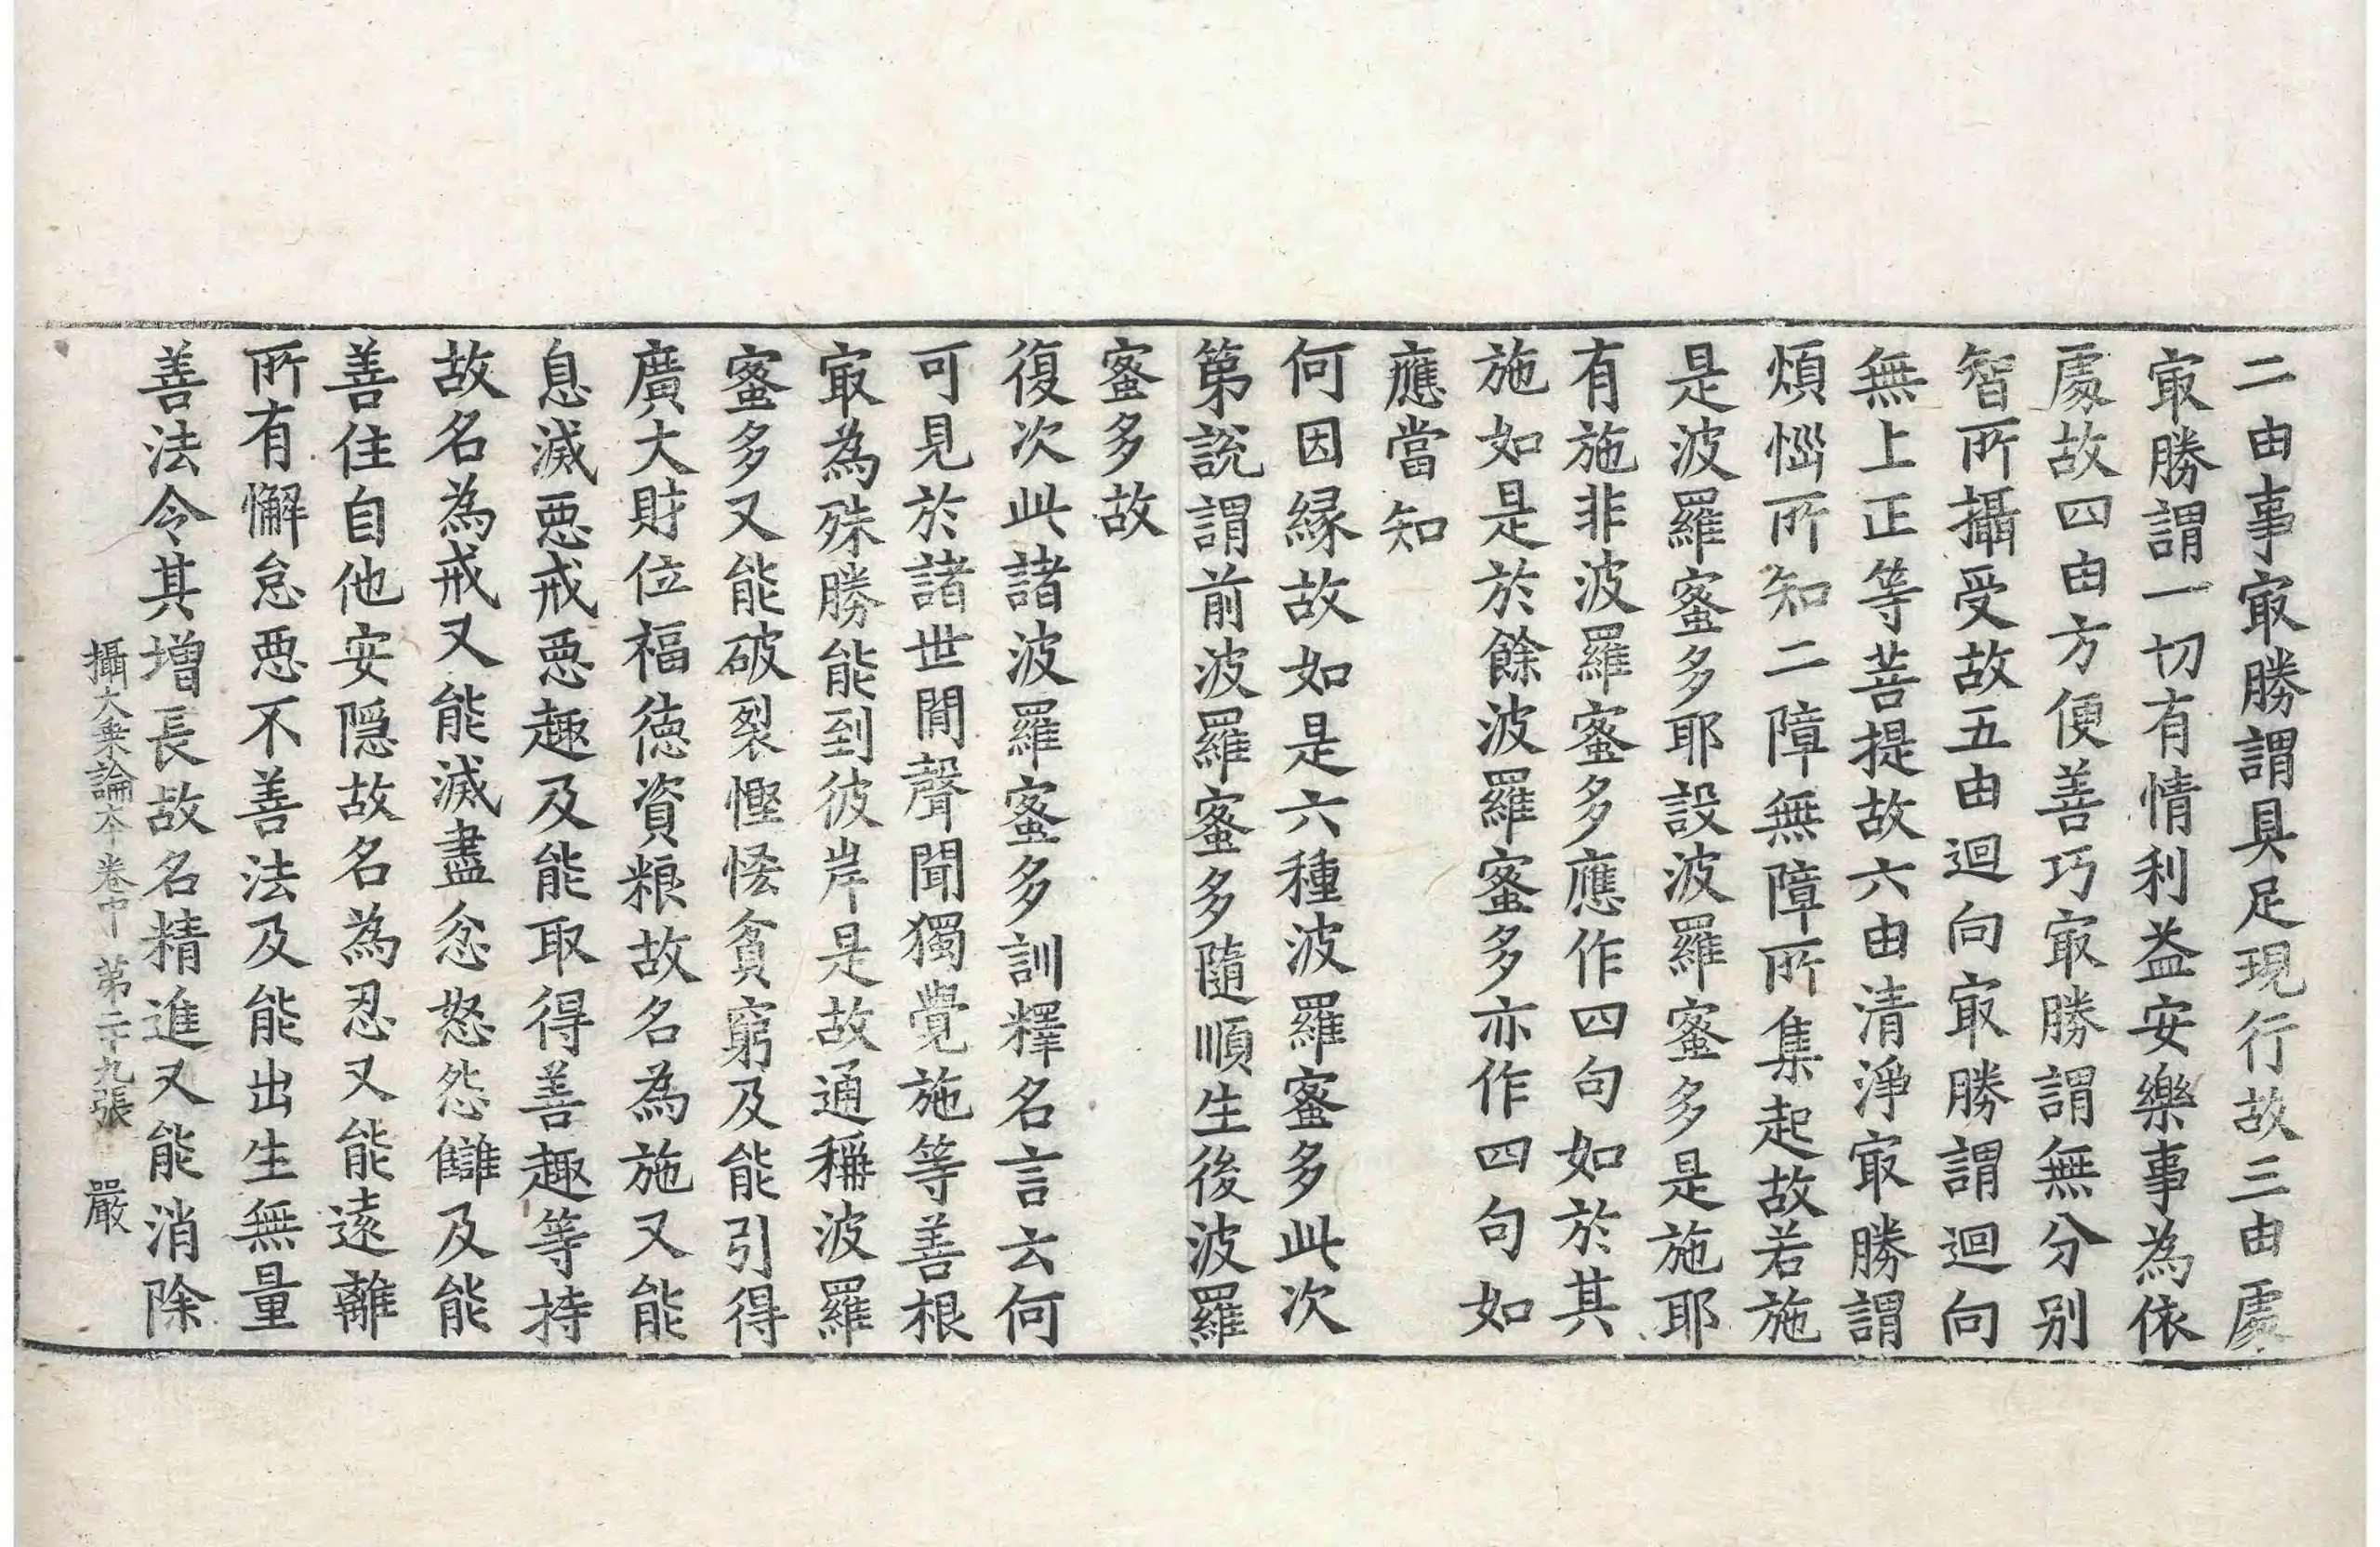 二由事㝡勝謂具足現行故三由處
㝡勝謂一切有情利益安樂事為依
處故四由方便善巧㝡勝謂無分别
智所攝受故五由迴向㝡勝謂迴向
無上正等菩提故六由清淨㝡勝謂
煩惱所知二障無障所集起故若施
是波羅蜜多耶設波羅蜜多是施耶
有施非波羅蜜多應作四句如於其
施如是於餘波羅蜜多亦作四句如
應當知
何因縁故如是六種波羅蜜多此次
第說謂前波羅蜜多隨順生後波羅
蜜多故
復次此諸波羅蜜多訓釋名言云何
可見於諸世閒聲聞獨覺施等善根
㝡為殊勝能到彼岸是故通稱波羅
蜜多又能破裂慳悋貧窮及能引得
廣大財位福德資粮故名為施又能
息滅惡戒惡趣及能取得善趣等持
故名為戒又能滅盡忿怒怨讎及能
善住自他安隱故名為忍又能遠離
所有懈怠惡不善法及能出生無量
善法令其增長故名精進又能消除
攝大乗論本卷中 第二十九張 嚴